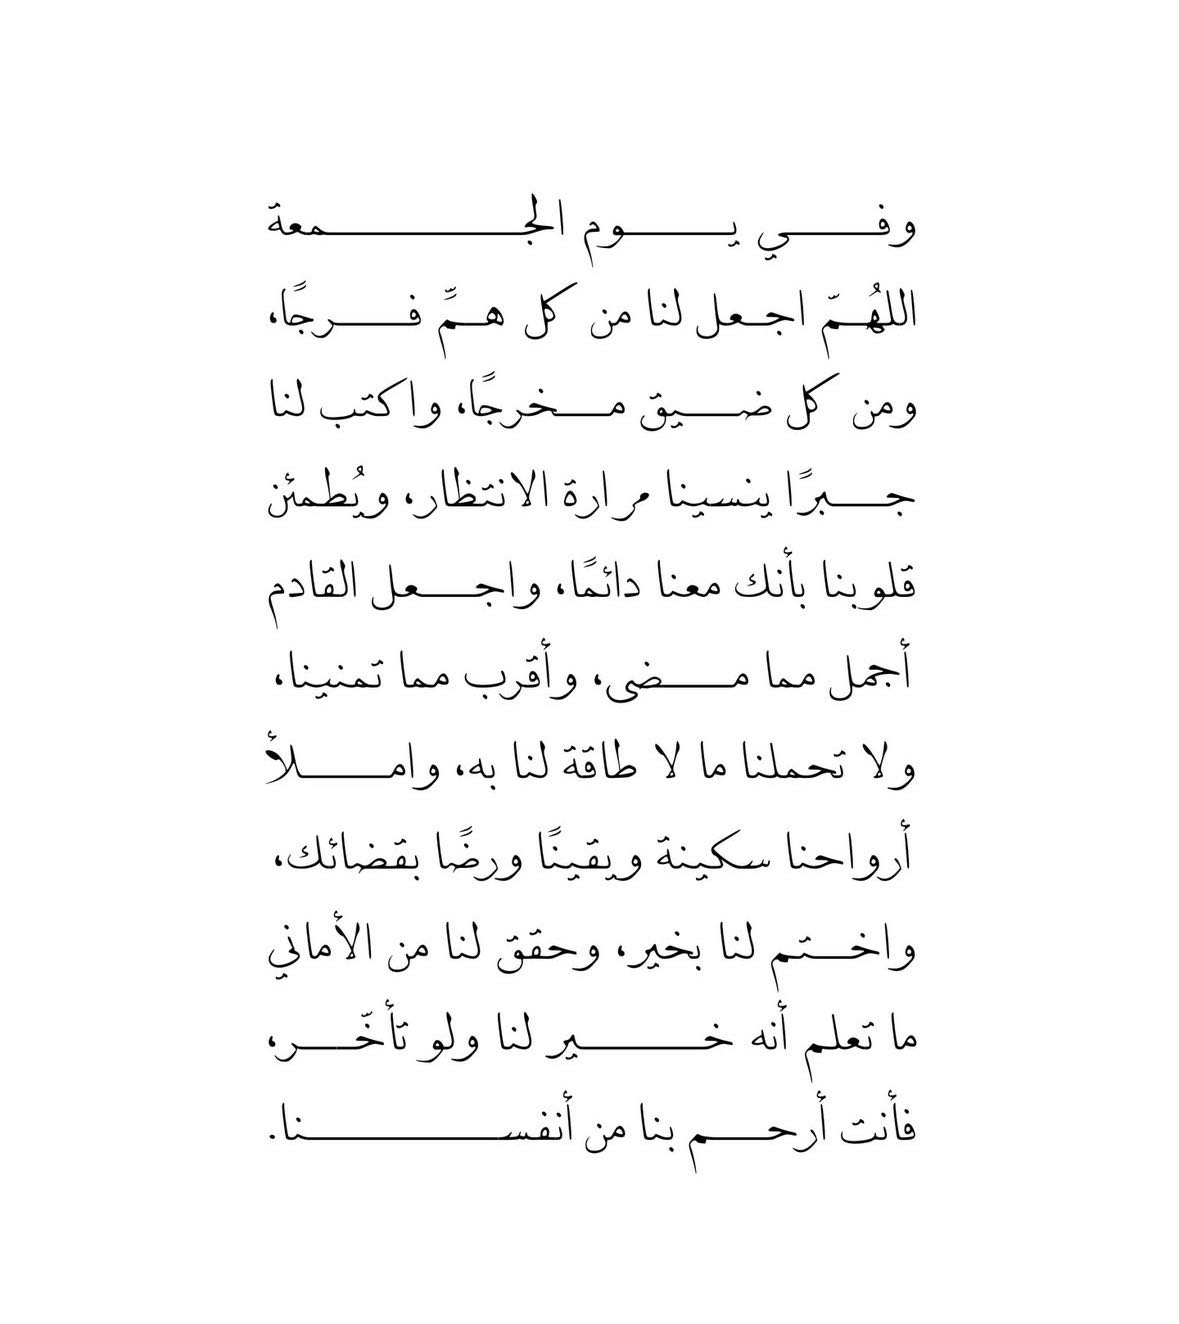 وفـــــي يـــــوم الجـــــــــمعة
اللهُـمّ اجـعل لنا من كل هـمٍّ فـــرجًا،
ومن كل ضـــيق مـــخرجًا، واكتب لنا
جـــبرًا ينسينا مرارة الانتظار، ويُطمئن
قلوبنا بأنك معنا دائمًا، واجـــعل القادم
أجمل مما مـــــضى، وأقرب مما تمنينا،
ولا تحملنا ما لا طاقة لنا به، وامـــــلأ
أرواحنا سكينة ويقينًا ورضًا بقضائك،
واخـــتم لنا بخير، وحقق لنا من الأماني
ما تعلم أنه خـــــــير لنا ولو تأخّـــر،
فأنت أرحـــم بنا من أنفســـــــــنا.